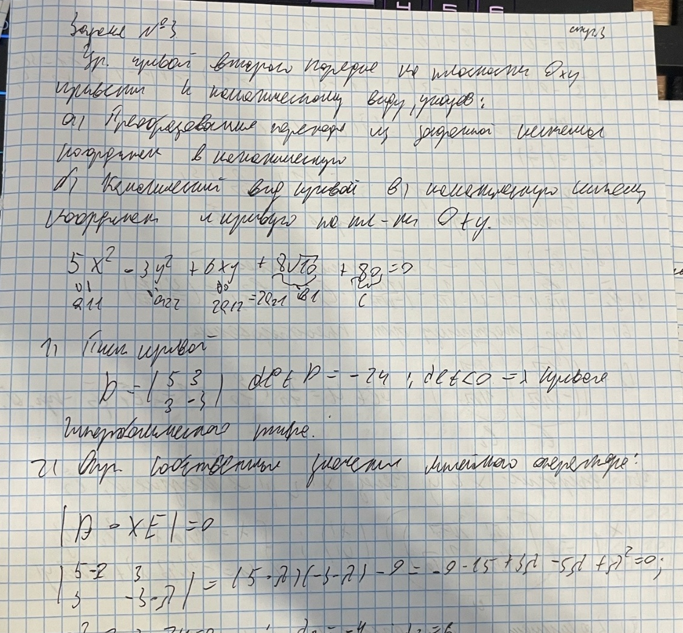 Задача №3 стр3
Ур. кривой второго порядка на плоскости Oxy
привести к каноническому виду, указав:
а) Преобразование перехода из заданной системы
координат в каноническую
б) Канонический вид кривой в) каноническую систему
координат и кривую на пл-ти Oxy.
5x² - 3y² + 6xy + 8√10 + 80 = 0
a11 a22 2a12=2a21 C
1) Тип кривой
D = |5 3| det D = -24 ; det<0 => кривая
3 -3
гиперболического типа.
2) Опр. собственные значения линейного оператора:
|D - λE| = 0
|5-λ 3| = (5-λ)(-3-λ) - 9 = -9-15+3λ-5λ+λ²=0;
3 -3-λ